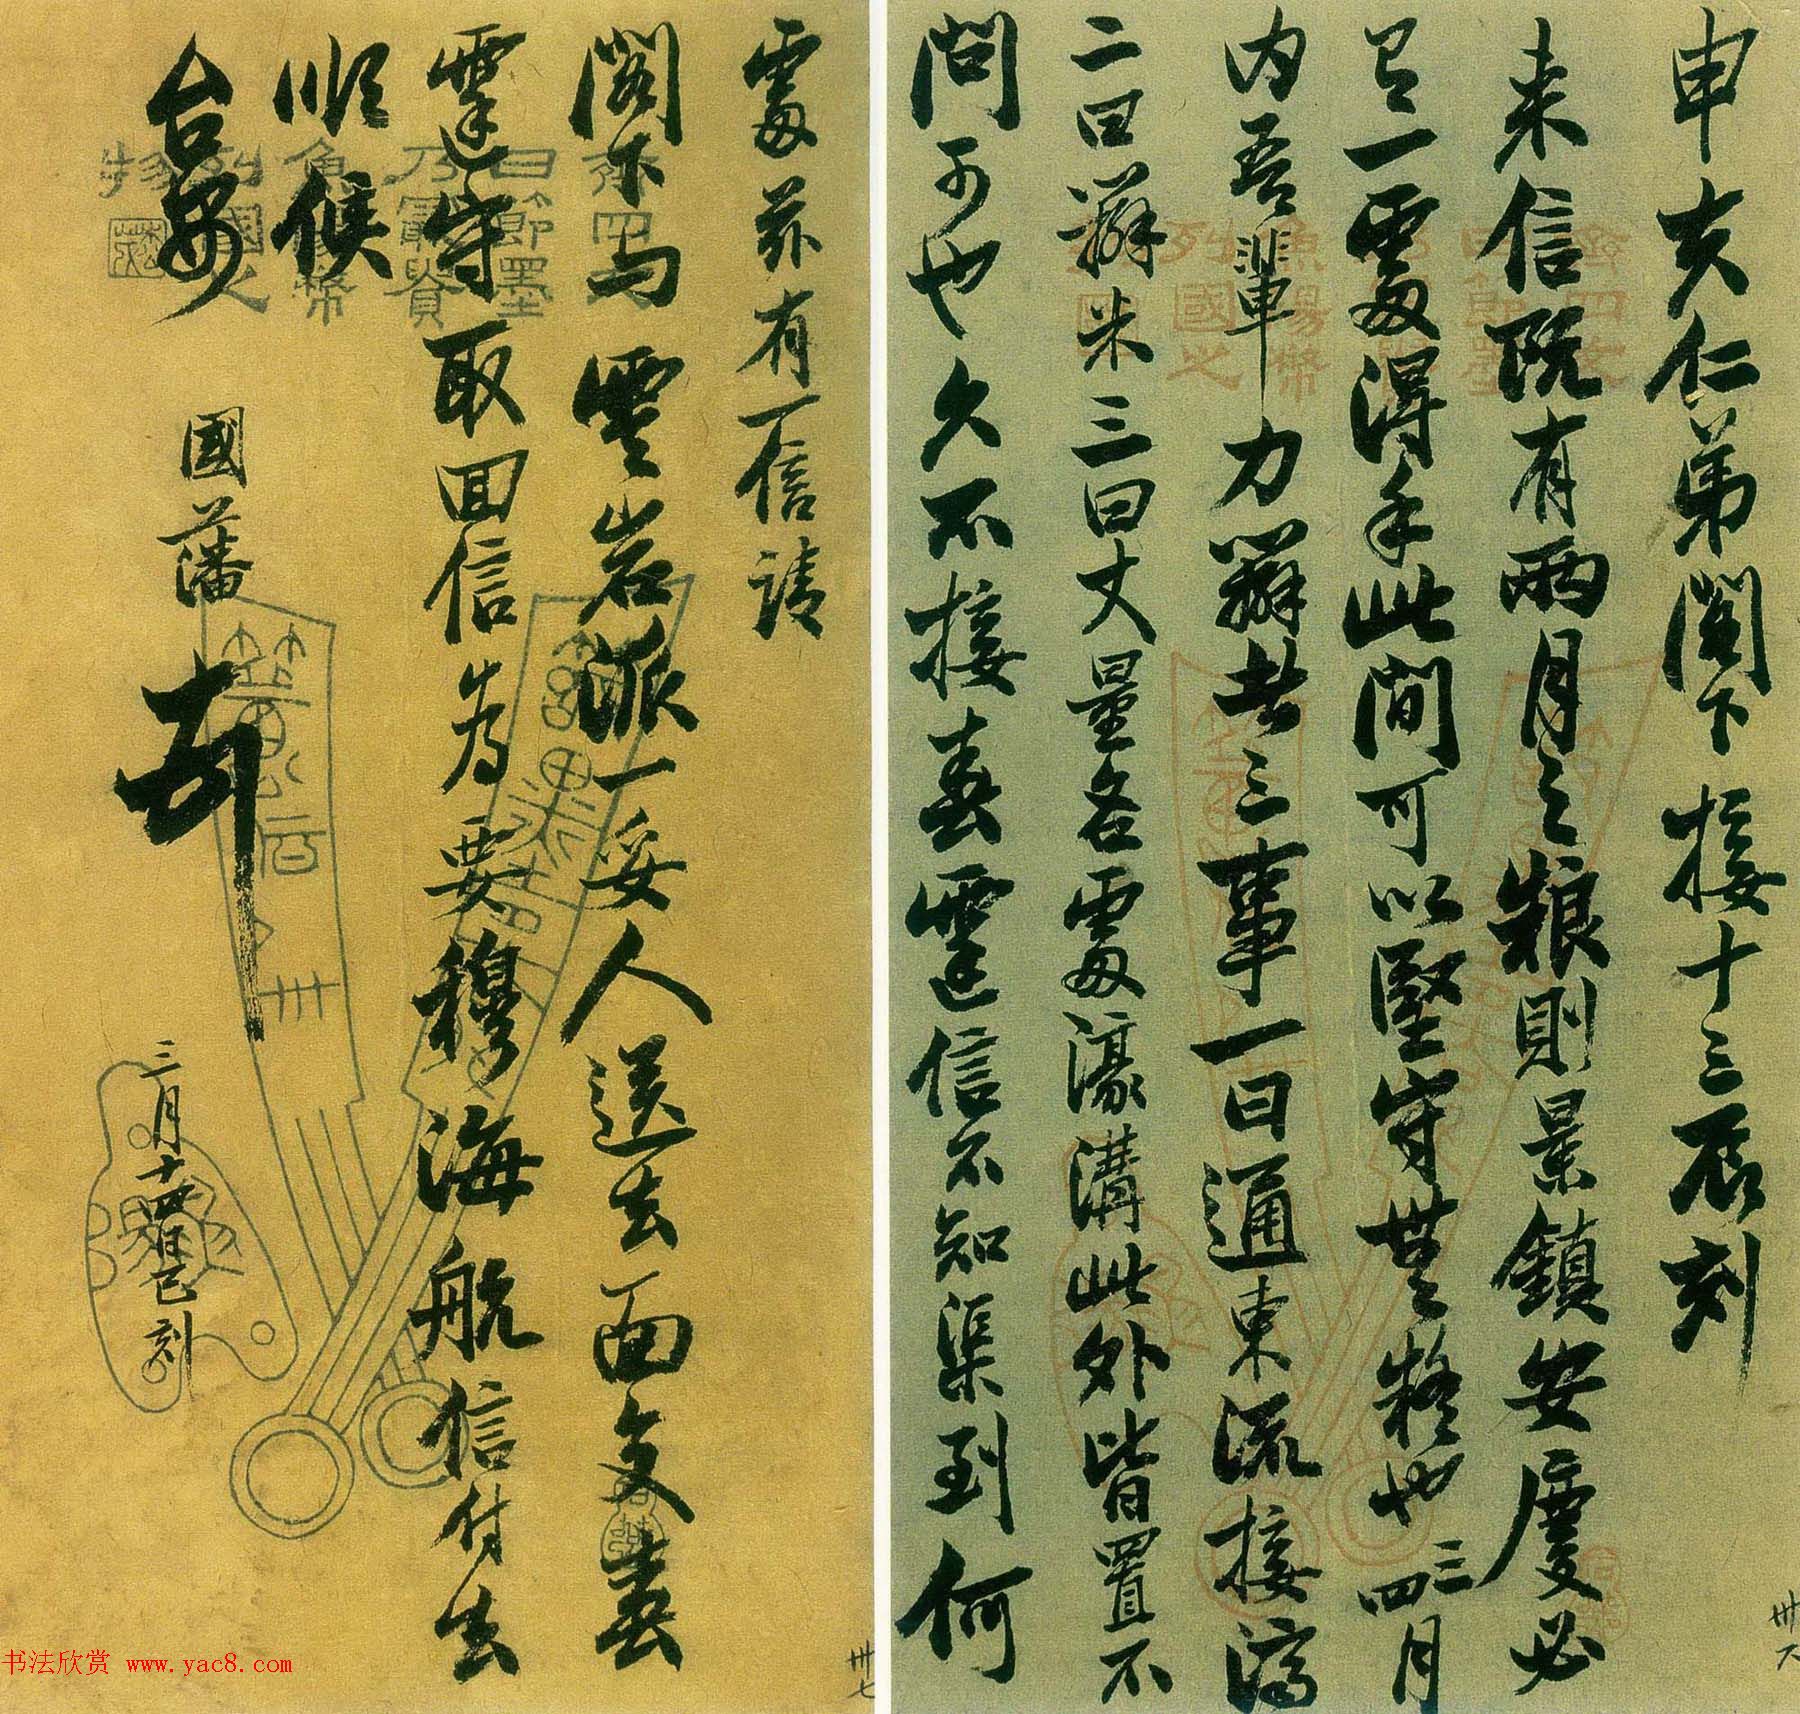 申夫仁弟閣下接十三辰刻
来信既有兩月之粮則景鎮安慶必
有一處得手此間可以堅守無疑也三四月
内吾輩力辦者三事一曰通東流接濟
二曰辦米三曰丈量各處濠溝此外皆置不
問可也久不接春霆信不知渠到何
處茲有一信請
閣下与雲岩派一妥人送去面交春
霆守取回信為要穆海航信付去
順候
台安
國藩
三月十四日巳刻
卅六
卅七
书法欣赏 www.yac8.com